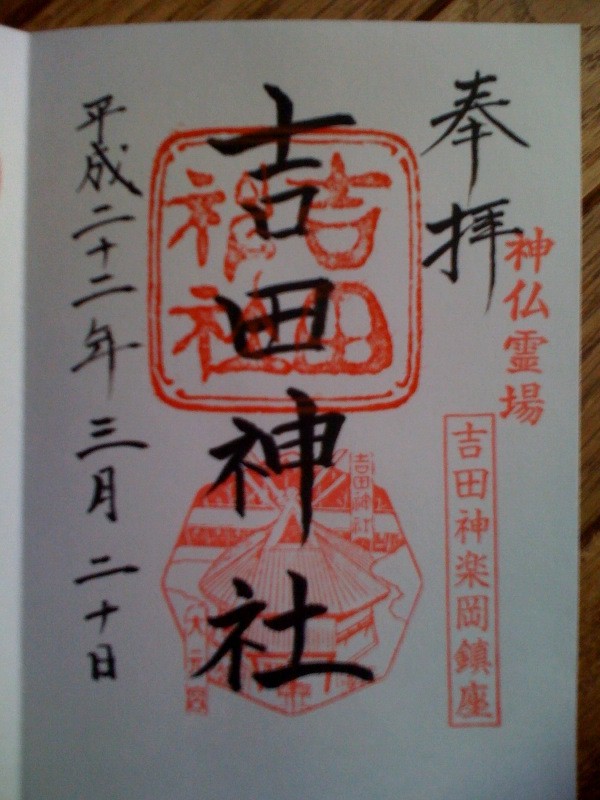 奉拝
神仏霊場
吉田神楽岡鎮座
吉田神社
吉田
神社
吉田神社
大元宮
平成二十二年三月二十日